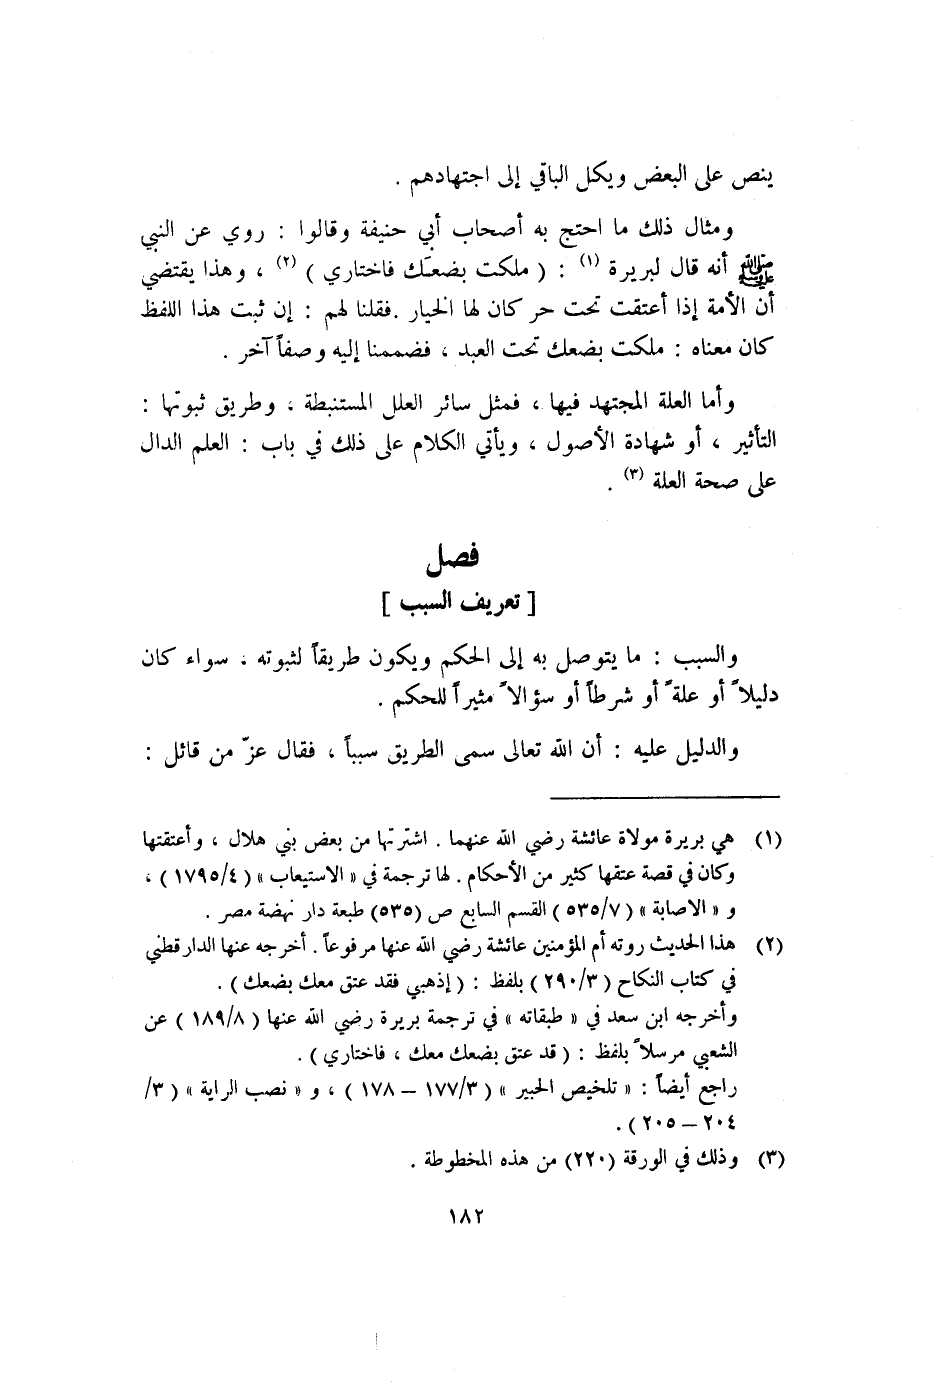 ينص على البعض ويكل الباقي إلى اجتهادهم .
ومثال ذلك ما احتج به أصحاب أبي حنيفة وقالوا : روي عن النبي
ﷺ أنه قال لبريرة (١) : ( ملكت بضعك فاختاري ) (٢) ، وهذا يقتضي
أن الأمة إذا أعتقت تحت حر كان لها الخيار . فقلنا لهم : إن ثبت هذا اللفظ
كان معناه : ملكت بضعك تحت العبد ، فضممنا إليه وصفاً آخر .
وأما العلة المجتهد فيها ، فمثل سائر العلل المستنبطة ، وطريق ثبوتها :
التأثير ، أو شهادة الأصول ، ويأتي الكلام على ذلك في باب : العلم الدال
على صحة العلة (٣) .
فصل
[ تعريف السبب ]
والسبب : ما يتوصل به إلى الحكم ويكون طريقاً لثبوته ، سواء كان
دليلاً أو علةً أو شرطاً أو سؤالاً مثيراً للحكم .
والدليل عليه : أن الله تعالى سمى الطريق سبباً ، فقال عزّ من قائل :
(١) هي بريرة مولاة عائشة رضي الله عنهما . اشترتها من بعض بني هلال ، وأعتقتها
وكان في قصة عتقها كثير من الأحكام . لها ترجمة في « الاستيعاب » ( ١٧٩٥/٤ ) ،
و « الاصابة » ( ٥٣٥/٧ ) القسم السابع ص (٥٣٥) طبعة دار نهضة مصر .
(٢) هذا الحديث روته أم المؤمنين عائشة رضي الله عنها مرفوعاً . أخرجه عنها الدارقطني
في كتاب النكاح ( ٢٩٠/٣ ) بلفظ : ( إذهبي فقد عتق معك بضعك ) .
وأخرجه ابن سعد في « طبقاته » في ترجمة بريرة رضي الله عنها ( ١٨٩/٨ ) عن
الشعبي مرسلاً بلفظ : ( قد عتق بضعك معك ، فاختاري ) .
راجع أيضاً : « تلخيص الحبير » ( ١٧٧/٣ – ١٧٨ ) ، و « نصب الراية » ( ٣/
٢٠٤ – ٢٠٥ ) .
(٣) وذلك في الورقة (٢٢٠) من هذه المخطوطة .
١٨٢